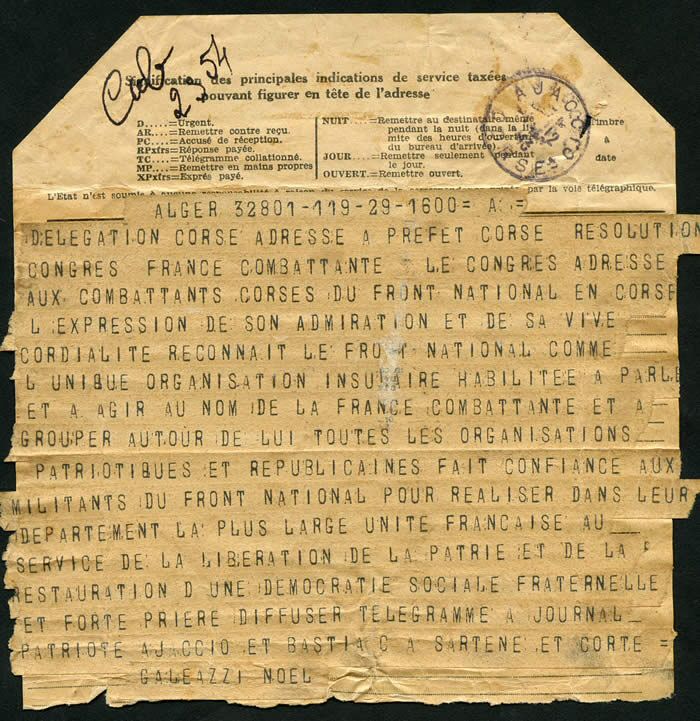 Signification des principales indications de service taxées
pouvant figurer en tête de l'adresse
D......=Urgent.
AR.....=Remettre contre reçu.
PC.....=Accusé de réception.
RPxfrs=Réponse payée.
TC.....=Télégramme collationné.
MP.....=Remettre en mains propres
XPxfrs=Exprés payé.
NUIT.....=Remettre au destinataire même
pendant la nuit (dans la li
mite des heures d'ouverture
du bureau d'arrivée).
JOUR.....=Remettre seulement pendant
le jour.
OUVERT.=Remettre ouvert.
Timbre
à
date
AJACCIO
L'Etat n'est soumis à aucune responsabilité à raison du service de la correspondance privée par la voie télégraphique.
ALGER 32801-119-29-1600= A =
DELEGATION CORSE ADRESSE A PREFET CORSE RESOLUTION
CONGRES FRANCE COMBATTANTE LE CONGRES ADRESSE
AUX COMBATTANTS CORSES DU FRONT NATIONAL EN CORSE
L EXPRESSION DE SON ADMIRATION ET DE SA VIVE
CORDIALITE RECONNAIT LE FRONT NATIONAL COMME
L UNIQUE ORGANISATION INSULAIRE HABILITEE A PARLE
ET A AGIR AU NOM DE LA FRANCE COMBATTANTE ET A
GROUPER AUTOUR DE LUI TOUTES LES ORGANISATIONS
PATRIOTIQUES ET REPUBLICAINES FAIT CONFIANCE AUX
MILITANTS DU FRONT NATIONAL POUR REALISER DANS LEUR
DEPARTEMENT LA PLUS LARGE UNITE FRANCAISE AU
SERVICE DE LA LIBERATION DE LA PATRIE ET DE LA
RESTAURATION D UNE DEMOCRATIE SOCIALE FRATERNELLE
ET FORTE PRIERE DIFFUSER TELEGRAMME A JOURNAL
PATRIOTE AJACCIO ET BASTIA C A SARTENE ET CORTE =
GALEAZZI NOEL